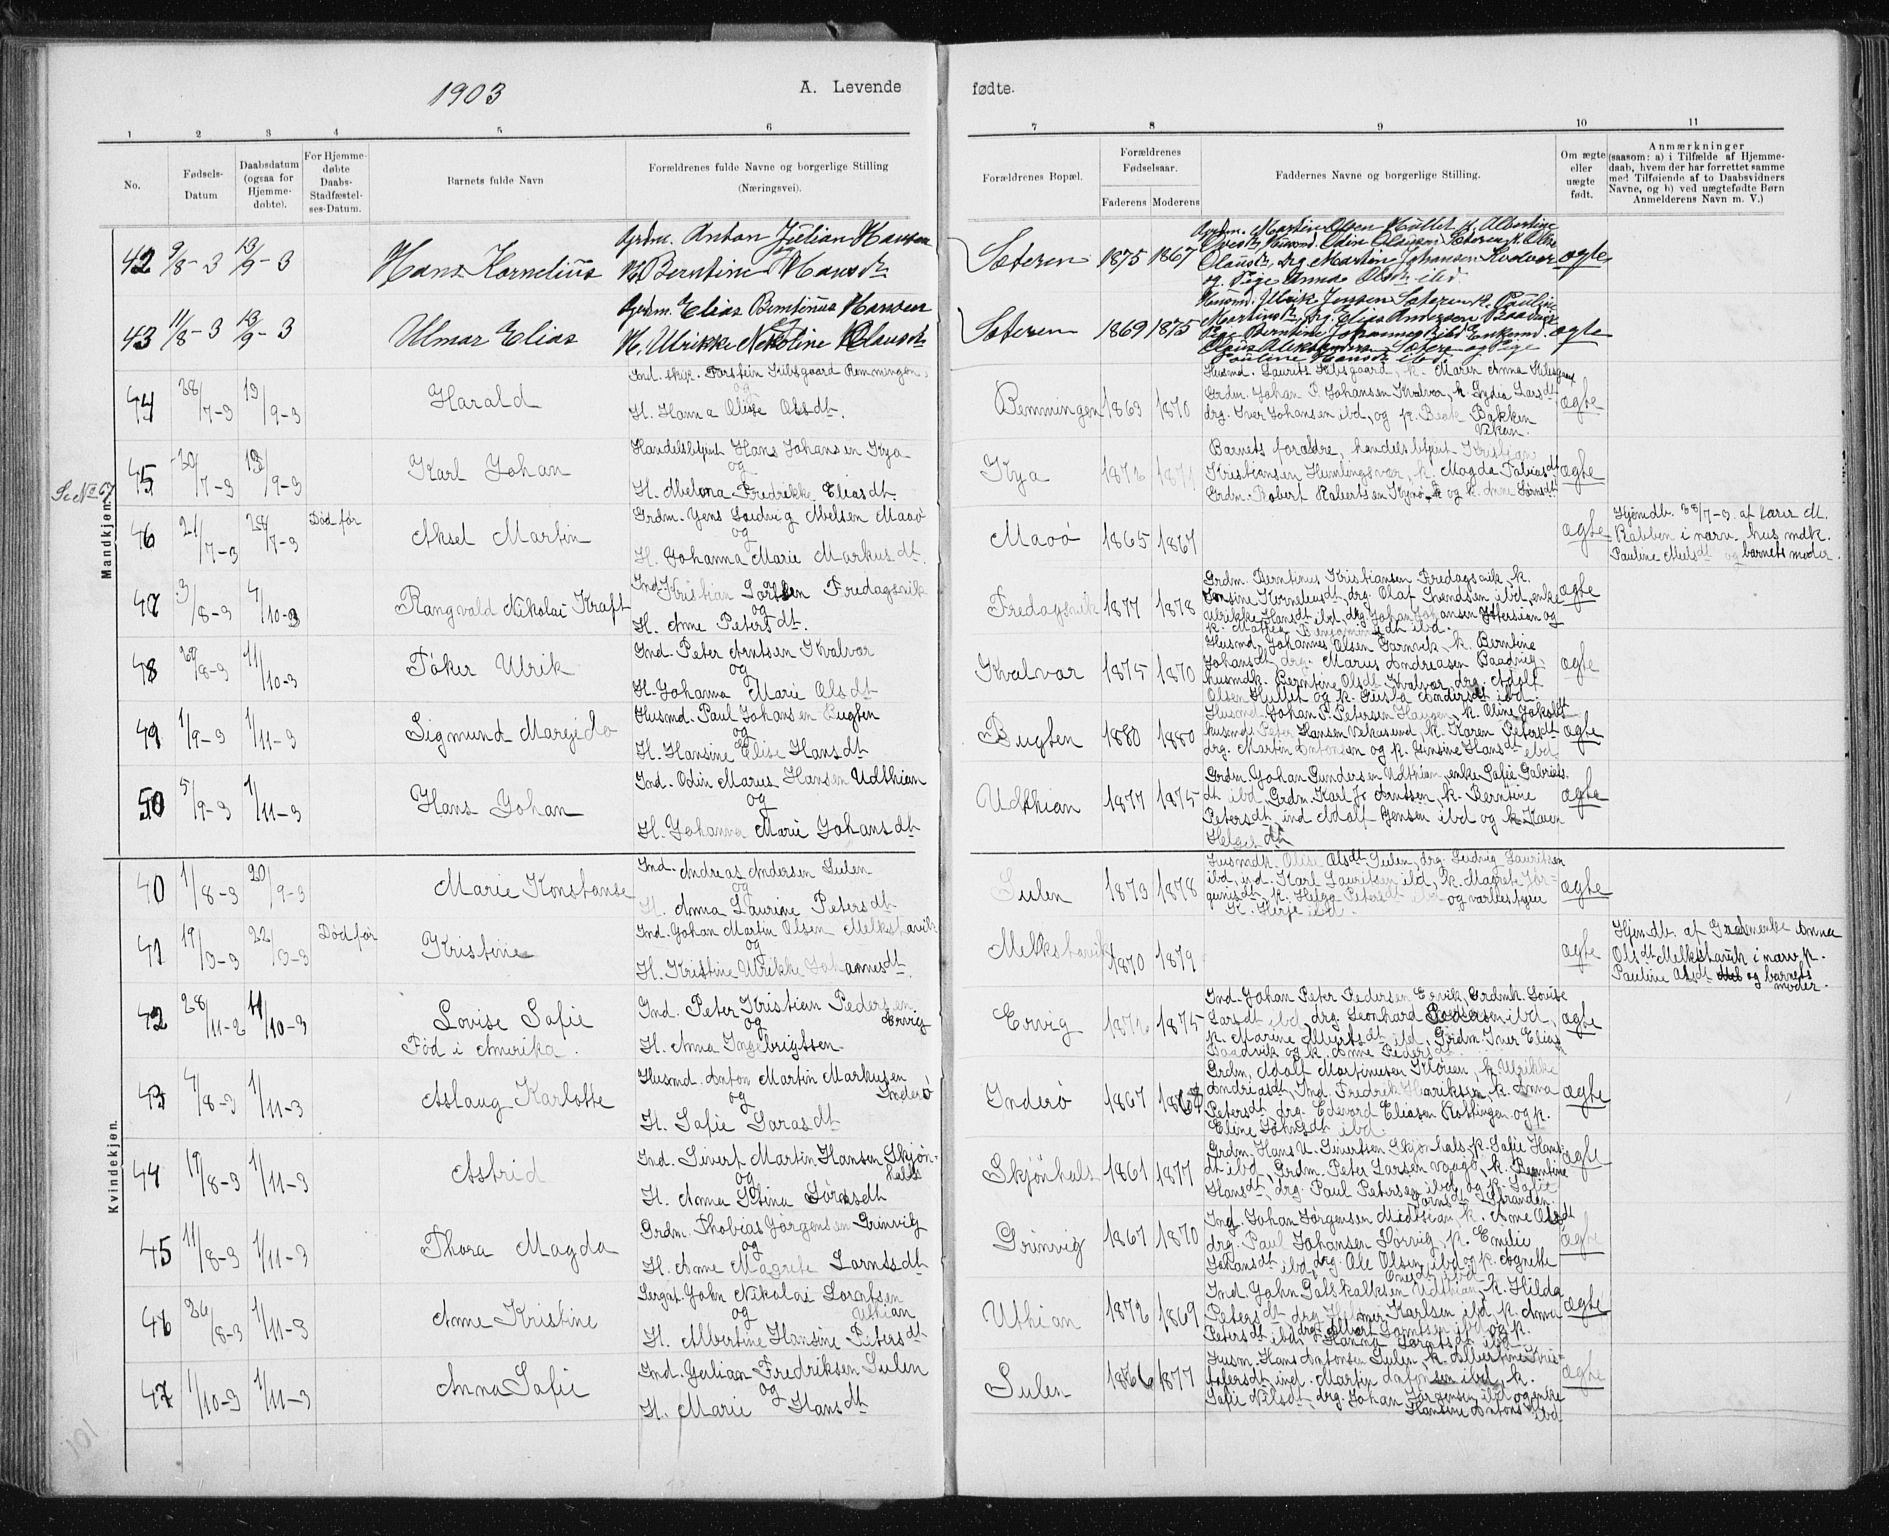 1903
A. Levende fødte.
1 2 3 4 5 6 7 8 9 10 11
No.
Fødsels-Datum
Daabsdatum (ogsaa for Hjemme-døbte).
For Hjemme-døbte Daabs-Stadfæstel-ses-Datum.
Barnets fulde Navn
Forældrenes fulde Navne og borgerlige Stilling (Næringsvei).
Forældrenes Bopæl.
Forældrenes Fødselsaar.
Faderens Moderens
Faddernes Navne og borgerlige Stilling.
Om ægte eller uægte født.
Anmærkninger (saasom: a) i Tilfælde af Hjemme-daab, hvem der har forrettet samme med Tilføiende af to Daabsvidners Navne, og b) ved uægtefødte Børn Anmelderens Navn m. V.)
Mandkjøn.
42 9/8-3 13/9-3 Hans Kornelius
Grdm. Anton Julian Hansen
og
H. Berntine Hansdt
Sæteren 1875 1867
Grdm. Martin Olsen Hullet, k. Albertine
Husmd. Odin Olausen Sæteren, k. Oline
Olausdt, drg. Martin Johansen Kvalvær
og Pige Anna Olsdt ibd.
ægte
43 11/8-3 13/9-3 Ulmar Elias
Grdm. Elias Berntinus Hansen
H. Ulrikke Nekoline Olausdt
Sæteren 1869 1875
Husmd. Ulrik Jensen Sæteren, k. Pauline
Martinsdt, drg. Elias Andersen Baadvik
Berntine Johannesdt ibd. Enkemd.
Olaus Aleksandersen Sæteren og Pige
Pauline Hansdt ibd.
ægte
44 28/7-3 13/9-3 Harald
Ind. skip. Torstein Kibsgaard Bemmingen,
og
H. Hanna Olise Olsdt.
Bemmingen 1863 1870
Husmd. Laurits Kibsgaard, k. Maren Anna Kibsgaard
Grdm. Johan P. Johansen Kvalvær, k. Lydia Larsdt
drg. Iver Johansen ibd, og p. Beak Bakken
Vikan.
ægte
Se No 67
45 20/7-3 13/9-3 Karl Johan
Handelsbtjent Hans Johansen Kya
og
H. Melona Fredrikke Eliasdt.
Kya 1872 1871
Barnets forældre, handelsbtjent Kristian
Kristiansen Humlingsvær, k. Magda Tobiasdt
Grdm. Robert Robertsen Kyaø, og k. Anne Sørnsdt
ægte
46 21/7-3 28/7-3 Død før Aksel Martin
Grdm. Jens Ludvig Abelsen Maaø
og
H. Johanna Marie Markusdt.
Maaø 1865 1867
ægte
Hjemdb. 28/7-3. af lærer M.
Rabben i nærv. husmdk.
Pauline Nielsdt og barnets moder.
47 3/8-3 4/10-3 Rangvald Nikolai Kraft
Ind. Kristian Larsen Fredagsvik
og
H. Ane Petersdt.
Fredagsvik 1877 1878
Grdm. Berntinus Kristiansen Fredagsvik, k.
Jonsine Korneliusdt, drg. Olaf Svendsen ibd, enke
Ulrikke Hansdt ibd, drg. Johan Johansen Ytterseian og
k. Mathea Benjaminsdt ibd.
ægte
48 29/8-3 11/10-3 Töker Ulrik
Ind. Peter Arntsen Kvalvær
og
H. Johanna Marie Olsdt
Kvalvær 1875 1870
Husmd. Johannes Olsen Garnvik, k. Berntine
Johansdt, drg. Marius Andreasen Baadvig,
husmdk. Berntine Olsdt Kvalvær, drg. Adolf
Olsen Hullet og k. Gusta Andersdt ibd.
ægte
49 1/9-3 1/11-3 Sigmund Maryido
Husmd. Paul Johansen Bugten
og
H. Hansine Elise Hansdt
Bugten 1880 1880
Husmd. Johan P. Petersen Haugen, k. Oline Jakobsdt
husmd. Peter Hansen Vikasund, k. Karen Petersdt
drg. Martin Antonsen og p. Hinsine Hansdt ibd
ægte
50 5/9-3 1/11-3 Hans Johan
Ind. Odin Marus Hansen Udthian
og
H. Johanna Marie Johansdt
Udthian 1877 1875
Grdm. Johan Gundersen Udthian, enke Safie Gabriels-
dt ibd, Grdm. Karl Jr Arntsen, k. Berntine
Petersdt, ind. Adolf Jensen ibd og k. Karen
Helgesdt
ægte
Kvindekjøn.
40 1/8-3 20/9-3 Marie Konstanse
Ind. Andreas Andersen Sulen
og
H. Anna Laurine Petersdt
Sulen 1873 1878
Husmdk. Olise Olsdt Sulen, drg. Ludvig Lauritsen
ibd, ind. Karl Lauritsen ibd, k. Magrete Jør-
ginisdt, k. Helga Petersdt ibd og værbestyrer
K. Herje ibd.
ægte
41 19/3-3 22/3-3 Død før Kristine
Ind. Johan Martin Olsen Melkstavik
og
H. Kristine Ulrikke Johannesdt.
Melkstavik 1870 1879
ægte
Hjemdb. af Grdmenke Anna
Olsdt Melkstavik i nærv. p.
Pauline Olsdt og barnets
moder.
42 28/11-2 11/10-3 Lovise Safie
Fød i Amerika.
Ind. Peter Kristian Pedersen
og Ervig
H. Anna Ingebrigtsen.
Ervig 1872 1875
Ind. Johan Peter Pedersen Ervik, Grdmk. Lovise
Larsdt ibd, drg. Leonhard Pedersen ibd,
p. Marine Albertsdt ibd, Grdm. Iver Elias
Baadvik og k. Anne Pedersdt.
ægte
43 4/8-3 1/11-3 Aslaug Karlotte
Husmd. Anton Martin Markusen
og Inderø
H. Safie Larasdt
Inderø 1867 1868
Grdm. Adolf Martinusen Kløven, k. Ulrikke
Andreasdt, Ind. Fredrik Henriksen, k. Anna
Petersdt, drg. Edvard Eliasen Kottingen og p.
Eline Johnsdt ibd.
ægte
44 19/8-3 1/11-3 Astrid
Ind. Sivert Martin Hansen Skjøn-
og hals
H. Anna Stina Sørnsdt
Skjønhals 1861 1877
Grdm. Hans U. Sivertsen Skjønhals, p. Safie Hans-
dt ibd, Grdm. Peter Larsen Vaagø, k. Berntine
Hansdt, drg. Paul Petersen ibd, og p. Safie
Sørnsdt Stranden.
ægte
45 11/8-3 1/11-3 Thora Magda
Grdm. Thobias Jørgensen Grinvig
og
H. Ane Magrete Larnsdt
Grinvig 1867 1870
Ind. Johan Jørgensen Midtsian, k. Ane Olsdt
drg. Paul Johansen Horvig, p. Emilie
Johansdt ibd, drg. Ole Olsen ibd og k. Agnette
Onesdt ibd
ægte
46 26/8-3 1/11-3 Anne Kristine
Sergnt. John Nikolai Lorntsen
og Uthian
H. Albertine Hansine Petersdt
Uthian 1872 1869
Ind. John Falskalksen Udthian, k. Hilda
Petersdt, drg. Helmer Karlsen ibd, k. Anna
Petersdt ibd, drg. Albert Lorntsen ibd og p.
Hanna Larntsdt ibd
ægte
47 1/10-3 1/11-3 Anna Safie
Ind. Julian Fredriksen Sulen
og
H. Marie Hansdt
Sulen 1866 1877
Husm. Hans Antonsen Sulen, k. Albertine Kris-
tofersdt, ind. Martin Antonsen ibd, k.
Safie Nilsdt, drg. Johan Jørgensen ibd og enke
Hansine Antonsdt ibd
ægte
101